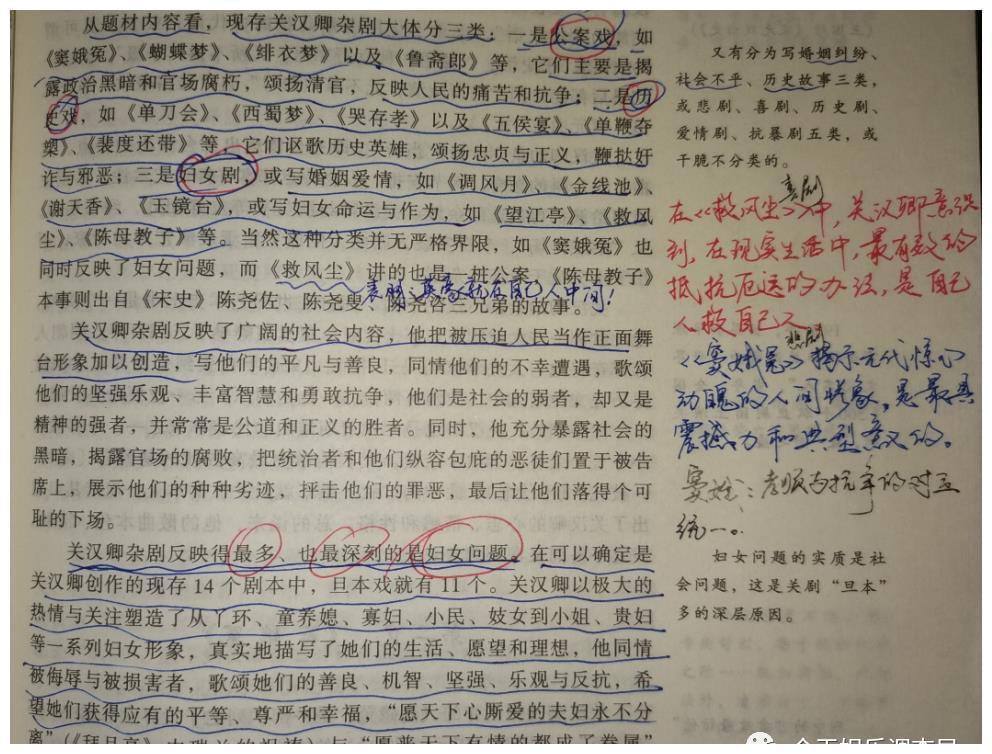 从题材内容看，现存关汉卿杂剧大体分三类：一是公案戏，如
《窦娥冤》、《蝴蝶梦》、《绯衣梦》以及《鲁斋郎》等，它们主要是揭
露政治黑暗和官场腐朽，颂扬清官，反映人民的痛苦和抗争；二是历
史戏，如《单刀会》、《西蜀梦》、《哭存孝》以及《五侯宴》、《单鞭夺
槊》、《裴度还带》等，它们讴歌历史英雄，颂扬忠贞与正义，鞭挞奸
诈与邪恶；三是妇女剧，或写婚姻爱情，如《调风月》、《金线池》、
《谢天香》、《玉镜台》，或写妇女命运与作为，如《望江亭》、《救风
尘》、《陈母教子》等。当然这种分类并无严格界限，如《窦娥冤》也
同时反映了妇女问题，而《救风尘》讲的也是一桩公案，《陈母教子》
表明：英雄就在自己人中间！
本事则出自《宋史》陈尧佐、陈尧叟、陈尧咨三兄弟的故事。
关汉卿杂剧反映了广阔的社会内容，他把被压迫人民当作正面舞
台形象加以创造，写他们的平凡与善良，同情他们的不幸遭遇，歌颂
他们的坚强乐观、丰富智慧和勇敢抗争，他们是社会的弱者，却又是
精神的强者，并常常是公道和正义的胜者。同时，他充分暴露社会的
黑暗，揭露官场的腐败，把统治者和他们纵容包庇的恶徒们置于被告
席上，展示他们的种种劣迹，抨击他们的罪恶，最后让他们落得个可
耻的下场。
关汉卿杂剧反映得最多、也最深刻的是妇女问题。在可以确定是
关汉卿创作的现存 14 个剧本中，旦本戏就有 11 个。关汉卿以极大的
热情与关注塑造了从丫环、童养媳、寡妇、小民、妓女到小姐、贵妇
等一系列妇女形象，真实地描写了她们的生活、愿望和理想，他同情
被侮辱与被损害者，歌颂她们的善良、机智、坚强、乐观与反抗，希
望她们获得应有的平等、尊严和幸福，“愿天下心厮爱的夫妇永不分
离”（《拜月亭》中瑞兰的祝祷）与“愿普天下有情的都成了眷属”
又有分为写婚姻纠纷、
社会不平、历史故事三类，
或悲剧、喜剧、历史剧、
爱情剧、抗暴剧五类，或
干脆不分类的。
喜剧
在《救风尘》中，关汉卿意识
到，在现实生活中，最有效的
抵抗厄运的办法，是自己
人救自己人
悲剧
《窦娥冤》揭示元代惊心
动魄的人间惨象，是最具
震撼力和典型意义的。
窦娥：孝顺与抗争的对立
统一。
妇女问题的实质是社
会问题，这是关剧“旦本”
多的深层原因。